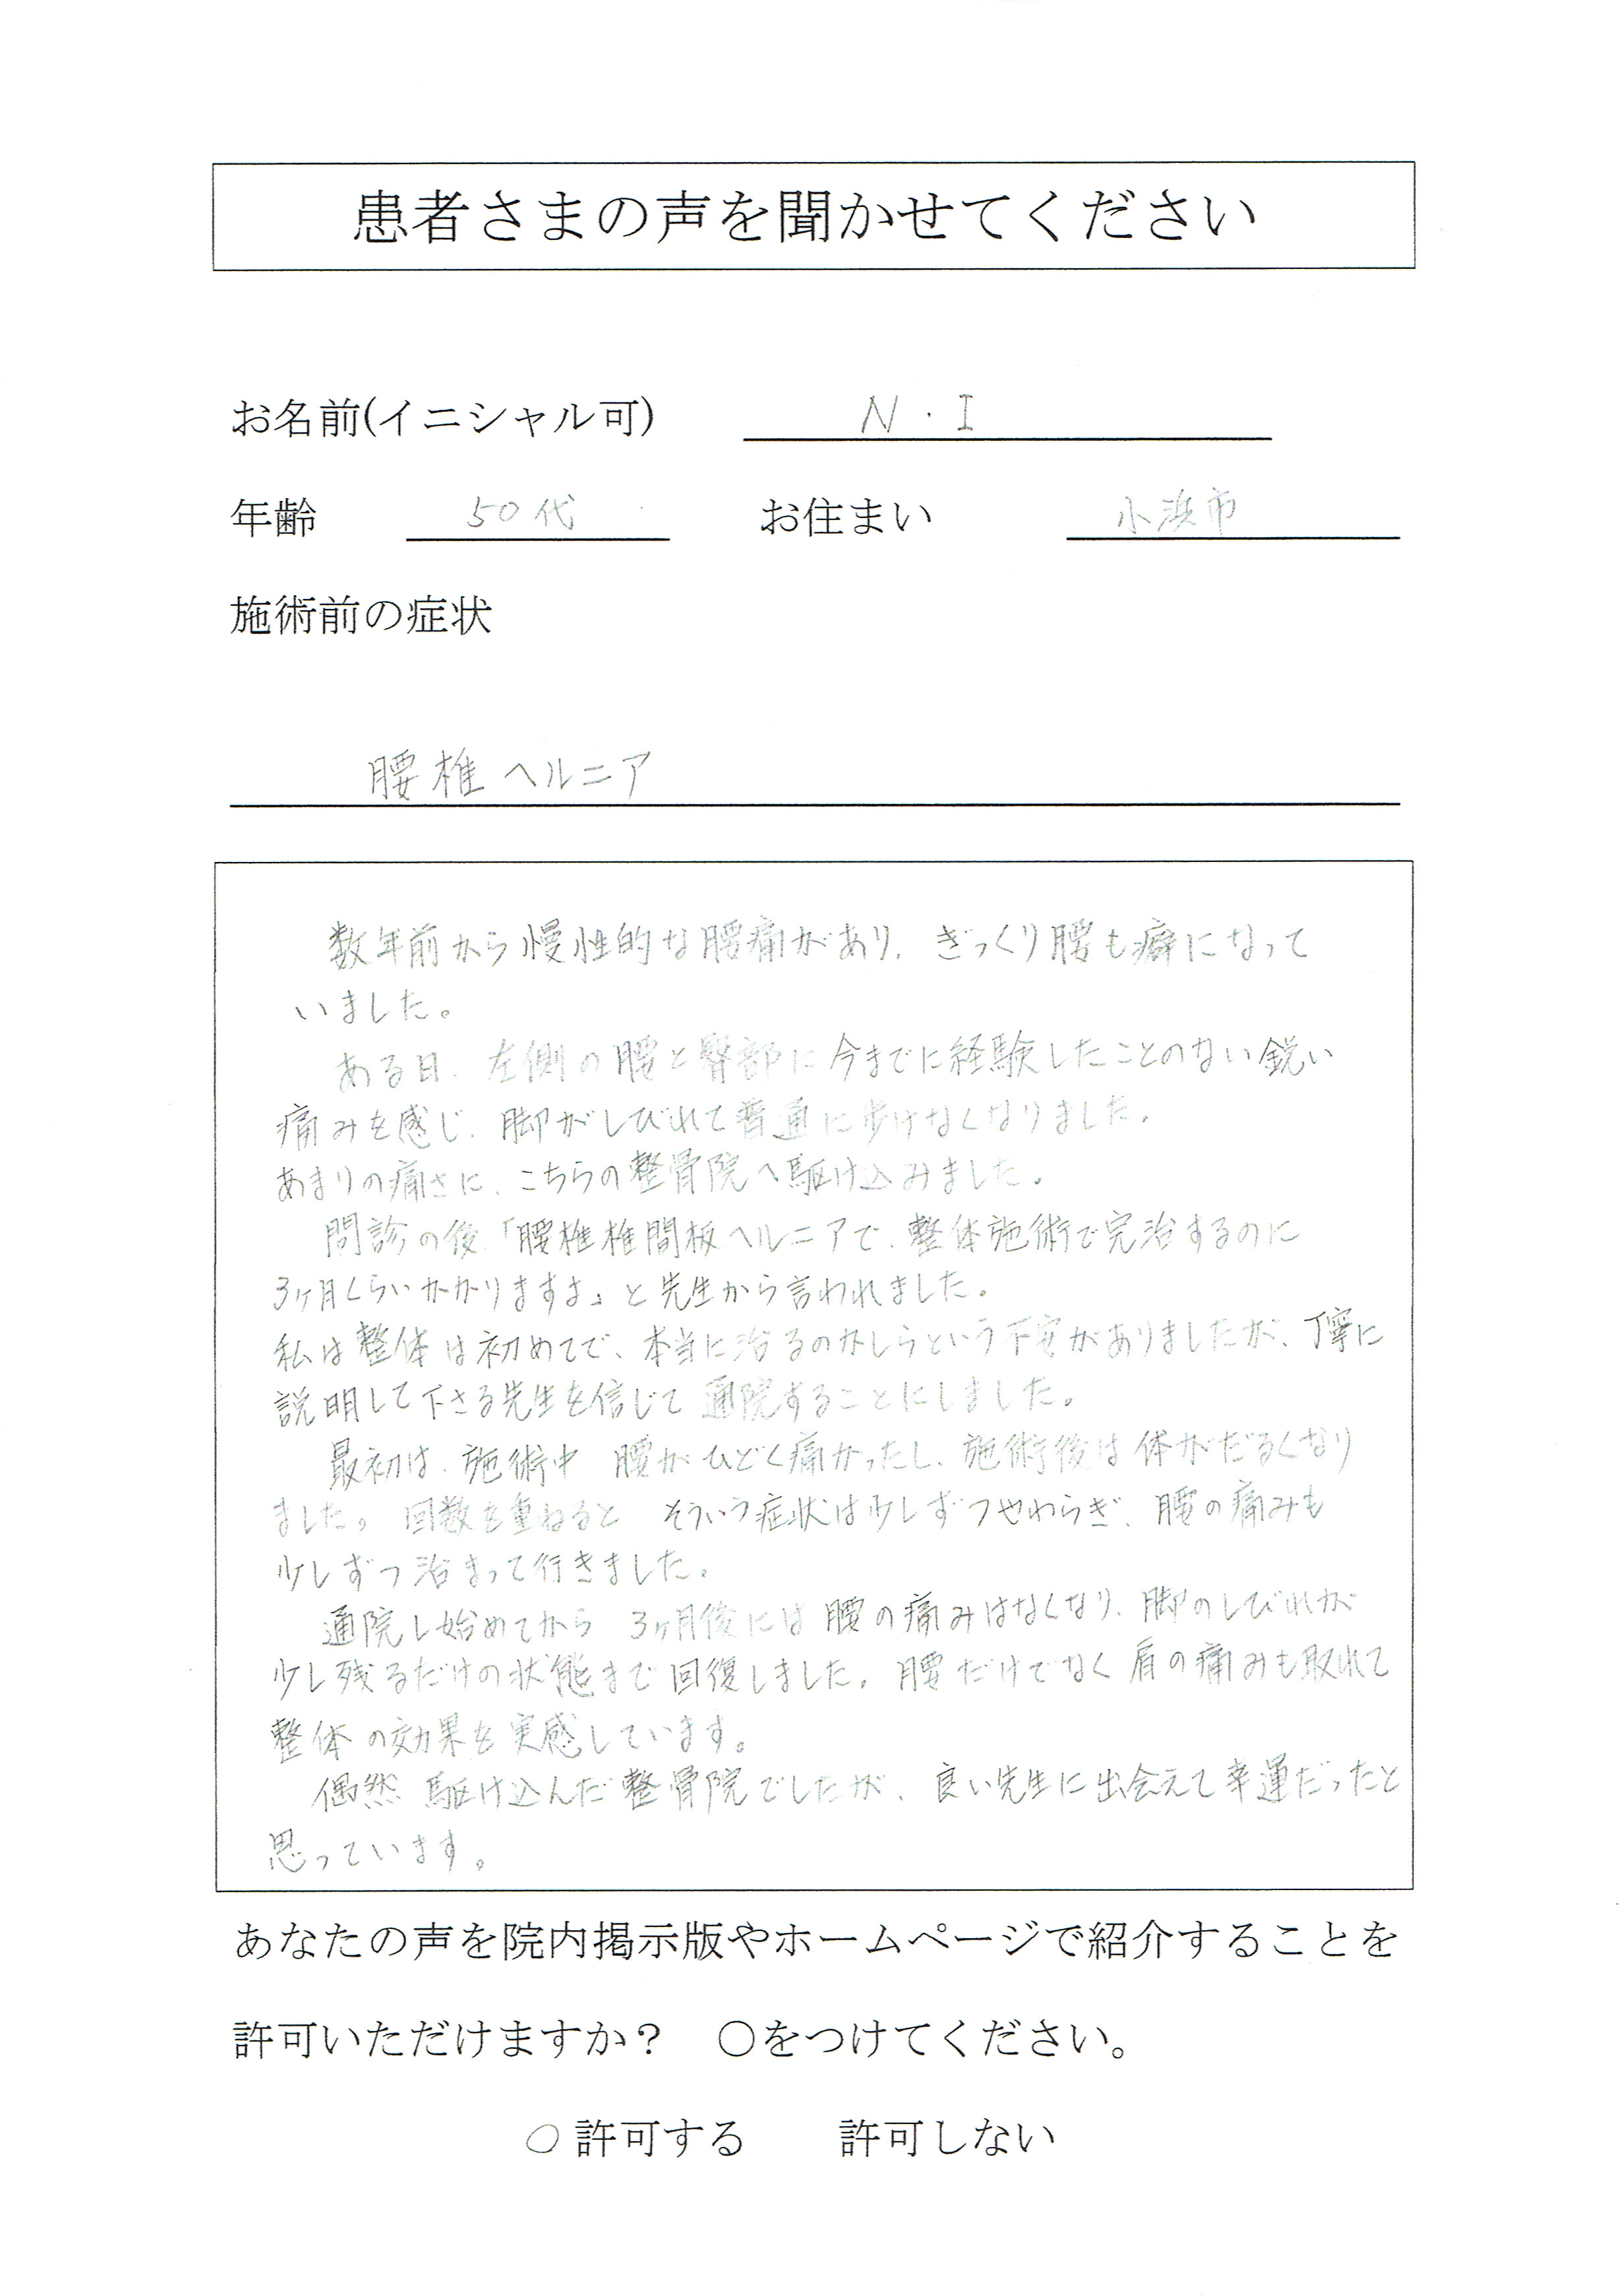 患者さまの声を聞かせてください
お名前(イニシャル可) N・I
年齢 50代 お住まい 小浜市
施術前の症状
腰椎ヘルニア
数年前から慢性的な腰痛があり、ぎっくり腰も癖になって
いました。
ある日、左側の腰と臀部に今までに経験したことのない鋭い
痛みを感じ、脚がしびれて普通に歩けなくなりました。
あまりの痛さに、こちらの整骨院へ駆け込みました。
問診の後「腰椎椎間板ヘルニアで、整体施術で完治するのに
3ヶ月くらいかかりますよ」と先生から言われました。
私は整体は初めてで、本当に治るのかしらという不安がありましたが、丁寧に
説明して下さる先生を信じて通院することにしました。
最初は、施術中 腰がひどく痛かったし、施術後は体がだるくなり
ました。回数を重ねると そういう症状は少しずつやわらぎ、腰の痛みも
少しずつ治まって行きました。
通院し始めてから 3ヶ月後には腰の痛みはなくなり、脚のしびれが
少し残るだけの状態まで回復しました。腰だけでなく肩の痛みも取れて
整体の効果を実感しています。
偶然 駆け込んだ整骨院でしたが、良い先生に出会えて幸運だったと
思っています。
あなたの声を院内掲示版やホームページで紹介することを
許可いただけますか？ ○をつけてください。
○許可する 許可しない